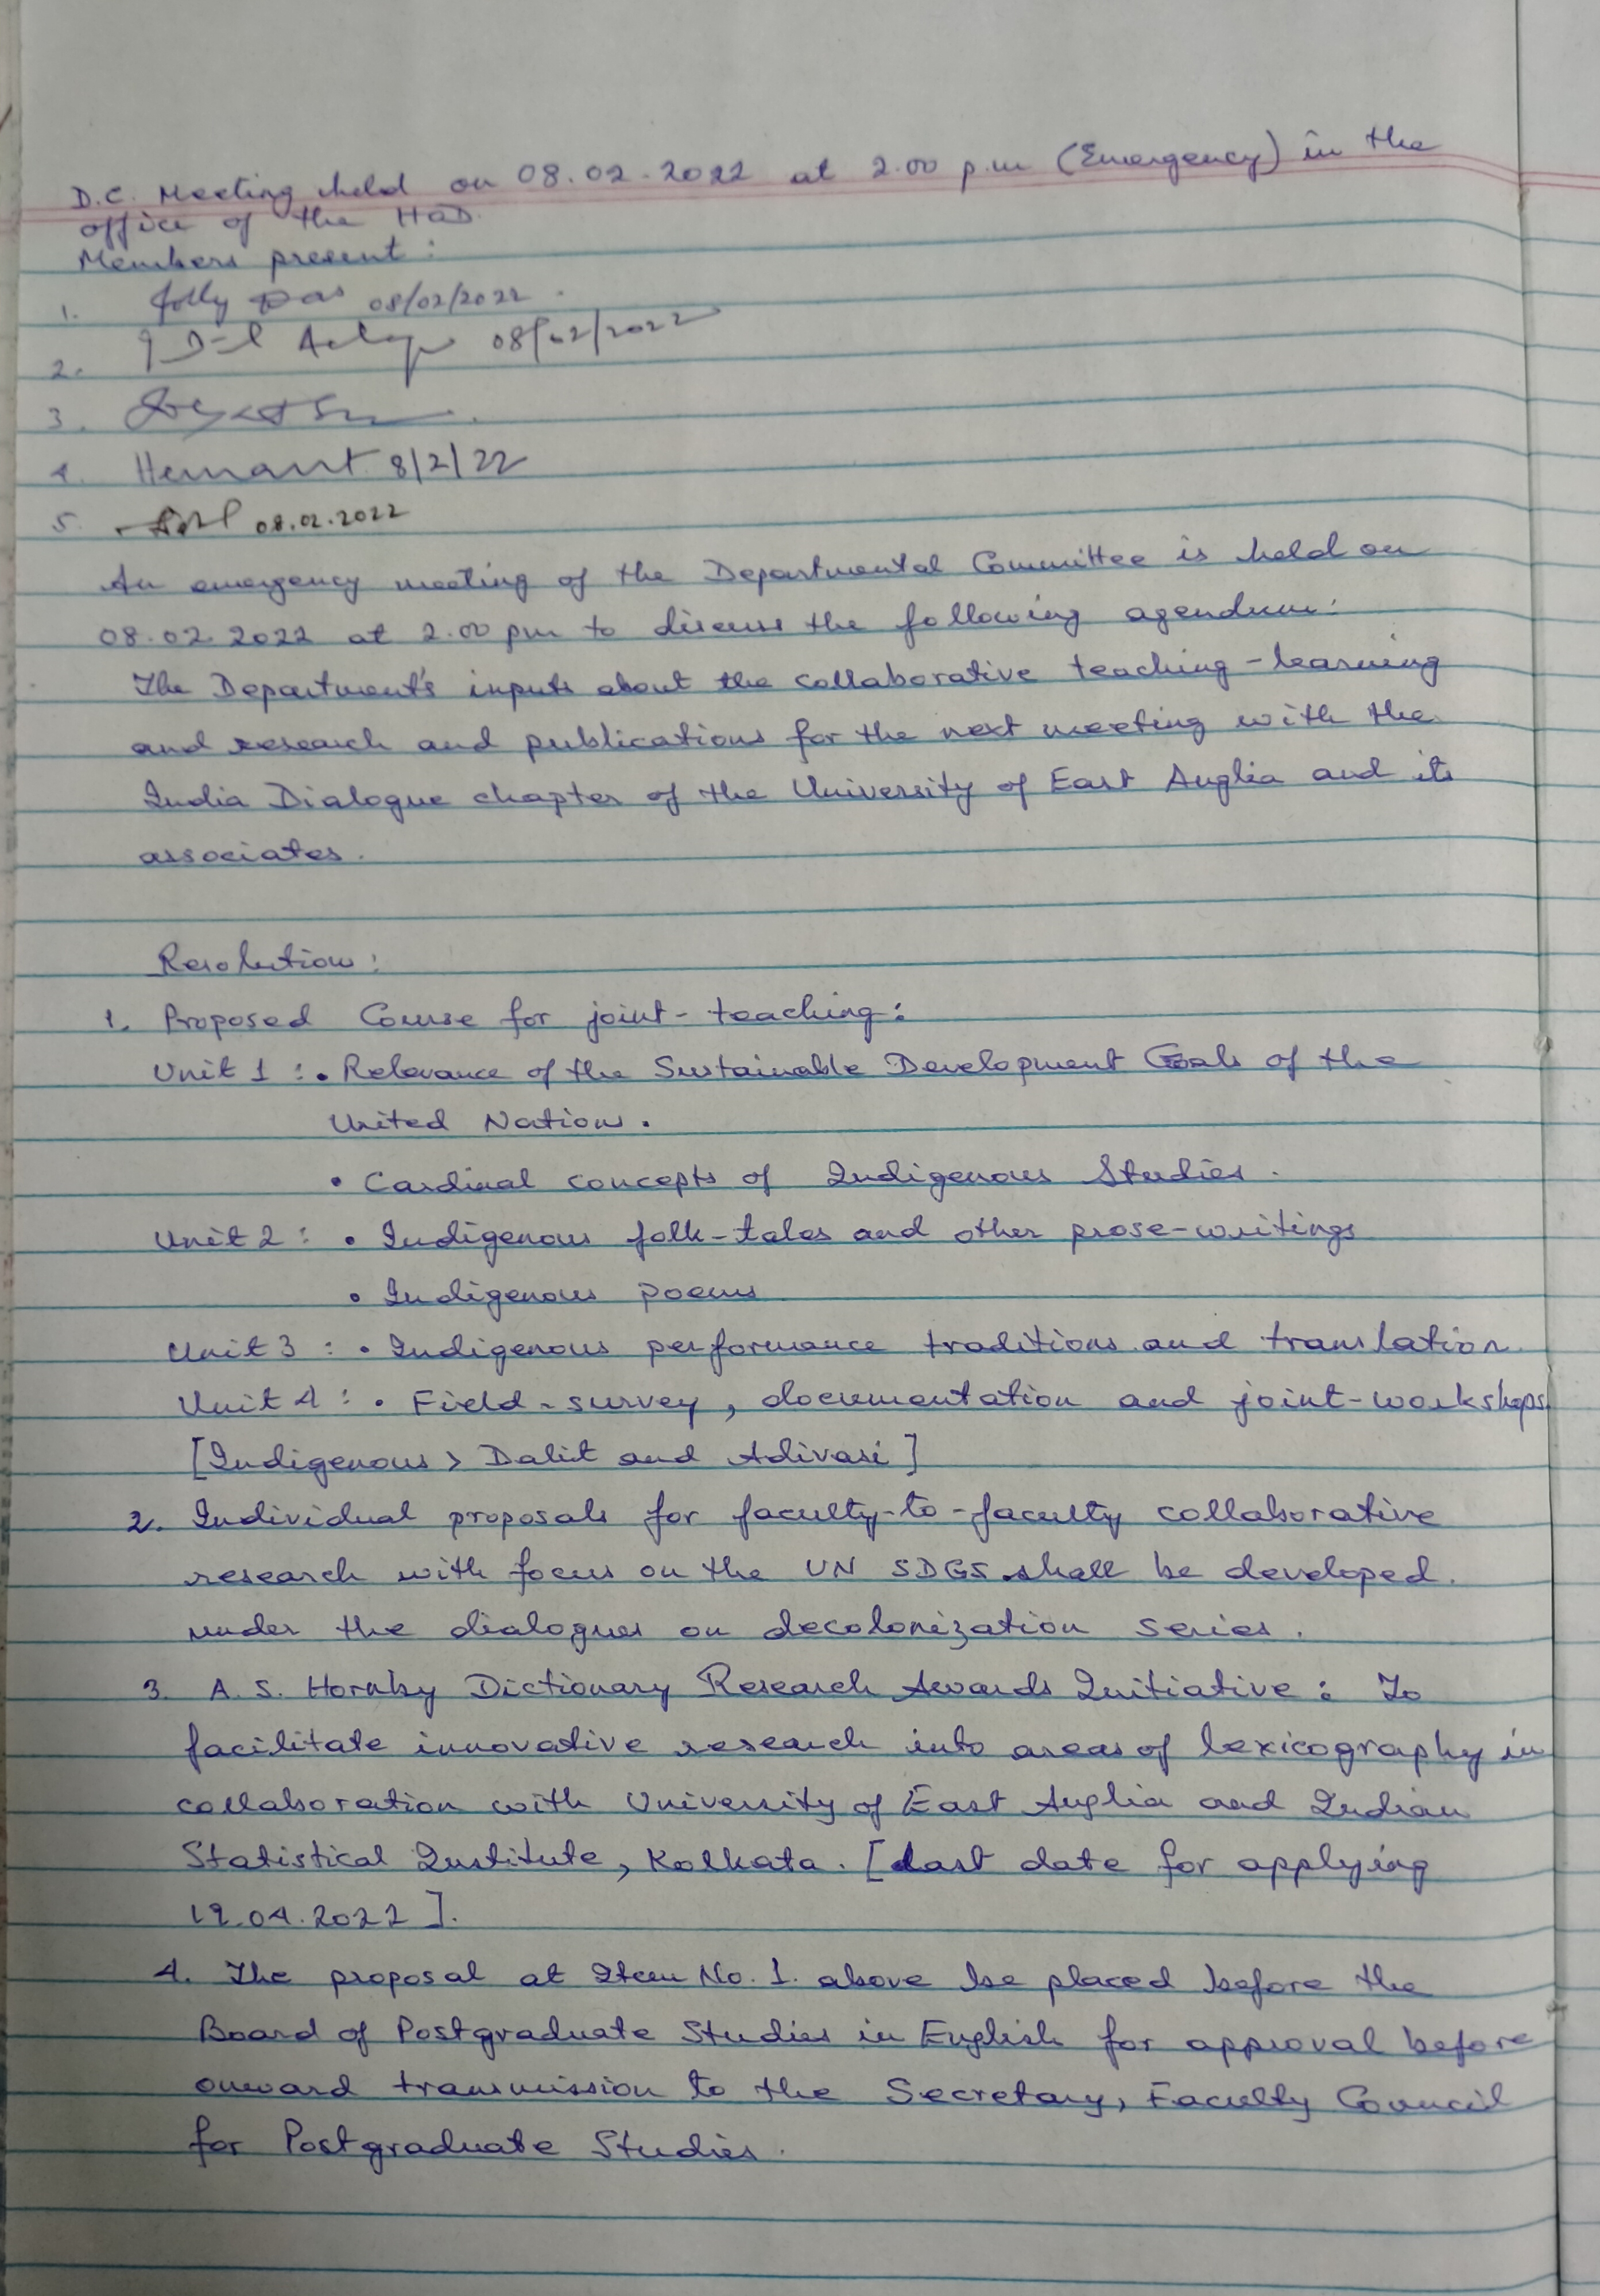 D.C. Meeting held on 08.02.2022 at 2.00 p.m (Emergency) in the
office of the HOD.
Members present:
1. Jolly Das 08/02/2022.
2. 08/02/2022
3.
4. Hemant 8/2/22
5. 08.02.2022
An emergency meeting of the Departmental Committee is held on
08.02.2022 at 2.00 pm to discuss the following agendum:
The Department's inputs about the collaborative teaching-learning
and research and publications for the next meeting with the
India Dialogue chapter of the University of East Anglia and its
associates.
Resolution:
1. Proposed Course for joint-teaching:
Unit 1 : • Relevance of the Sustainable Development Goals of the
United Nations.
• Cardinal concepts of Indigenous Studies.
Unit 2 : • Indigenous folk-tales and other prose-writings
• Indigenous poems
Unit 3 : • Indigenous performance traditions and translation.
Unit 4 : • Field-survey, documentation and joint-workshops
[Indigenous > Dalit and Adivasi]
2. Individual proposals for faculty-to-faculty collaborative
research with focus on the UN SDGS shall be developed.
under the dialogues on decolonization series.
3. A. S. Hornby Dictionary Research Awards Initiative : To
facilitate innovative research into areas of lexicography in
collaboration with University of East Anglia and Indian
Statistical Institute, Kolkata. [Last date for applying
19.04.2022].
4. The proposal at Item No. 1. above be placed before the
Board of Postgraduate Studies in English for approval before
onward transmission to the Secretary, Faculty Council
for Postgraduate Studies.